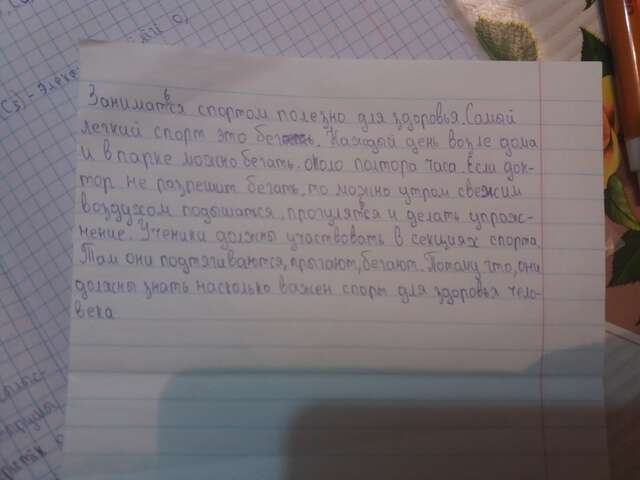 Заниматся спортом полезно для здоровья. Самый
легкий спорт это бег. Каждый день возле дома
и в парке можно бегать. Около полтора часа. Если док-
тор не разрешит бегать, то можно утром свежим
воздухом подышатся, прогулятся и делать упраж-
нение. Ученики должны участвовать в секциях спорта
Там они подтягиваются, прыгают, бегают. Потому что, они
должны знать насколько важен спорт для здоровья чело-
века